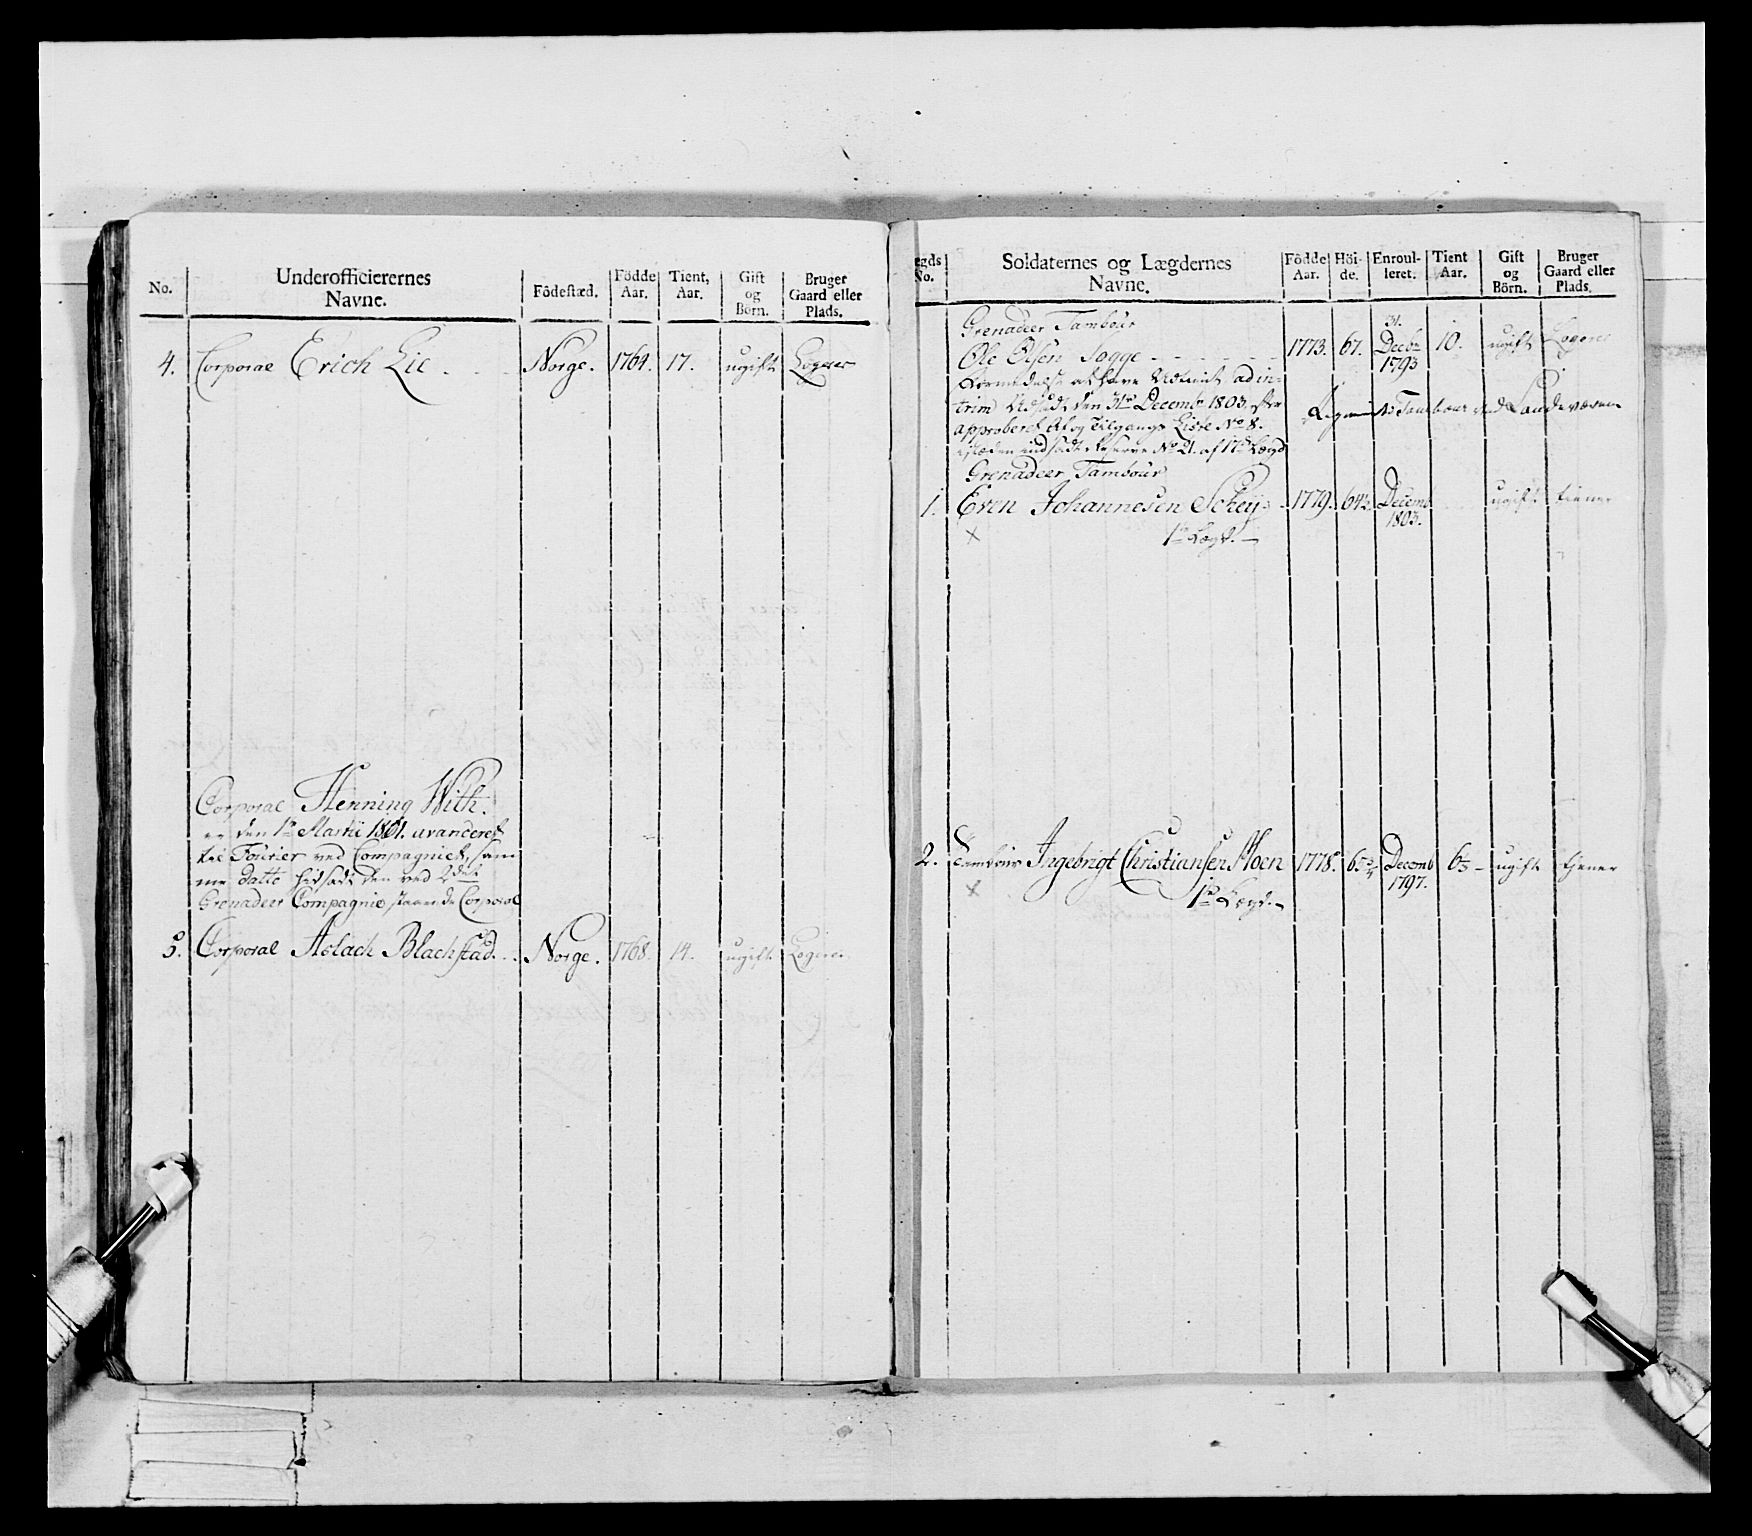 No.
Underofficierernes
Navne.
Födestæd.
Födde
Aar.
Tient,
Aar.
Gift
og
Börn.
Bruger
Gaard eller
Plads.
4. Corporal Erich Lie Norge. 1764. 17. ugift Logerer
Corporal Henning With.
er den 1te Martii 1801. avanceret
til Fourier ved Compagniet, sam
me datto hidsadt den ved 2det
Grenadeer Compagnie staaende Corporal
5. Corporal Aslach Blachstad. Norge. 1768. 14. ugift Logerer
ægds
No.
Soldaternes og Lægdernes
Navne.
Födde
Aar.
Höi-
de.
Enroul-
leret.
Tient
Aar.
Gift
og
Börn.
Bruger
Gaard eller
Plads.
Grenadeer Tambour
Ole Olsen Sogge 1773. 67. 31. Decbr 1793 10. ugift Logerer
ad in-
trim Udsadt den 31te Decembr 1803,
approberet Af og Tilgangs Liste No 8.
indsadt Reserve No 21. af 17de Lægd
Tambour ved Landeværn
Grenadeer Tambour
1. Even Johannesen Schey 1779. 64½ Decemb 1803. ugift tiener
x 1te Lægd.
2. Tambour Ingebrigt Christiansen Moen 1778. Decemb 1797. 6 ugift tjener
x 1te Lægd.